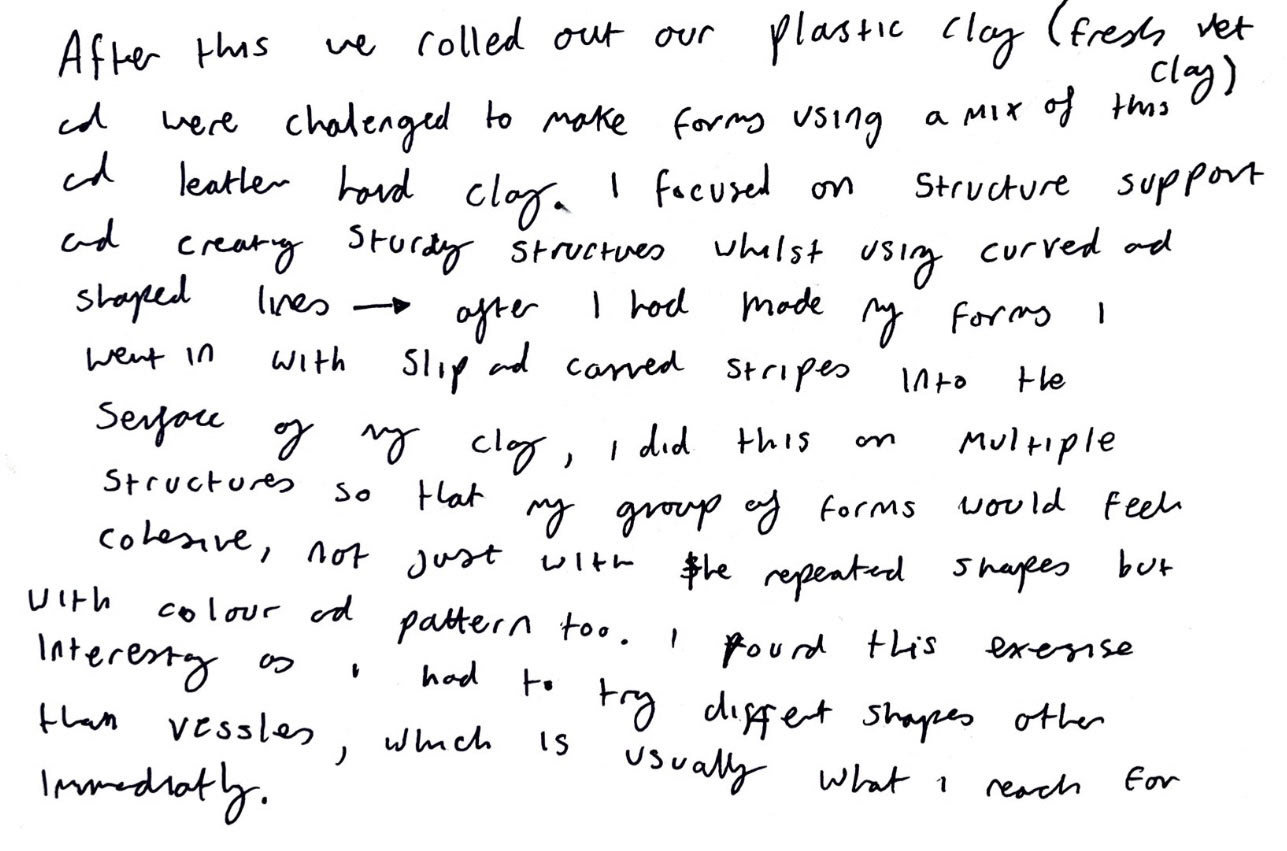 After this we rolled out our plastic clay (fresh wet
clay)
and were chalenged to make forms using a mix of this
and leather hard clay. I focused on structure support
and creating sturdy structures whilst using curved and
shaped lines → after I had made my forms I
went in with slip and carved stripes into the
serface of my clay, I did this on multiple
structures so that my group of forms would feel
cohesive, not just with the repeated shapes but
with colour and pattern too. I found this exersise
interesting as I had to try diffent shapes other
than vessles, which is usually what I reach for
immediatly.